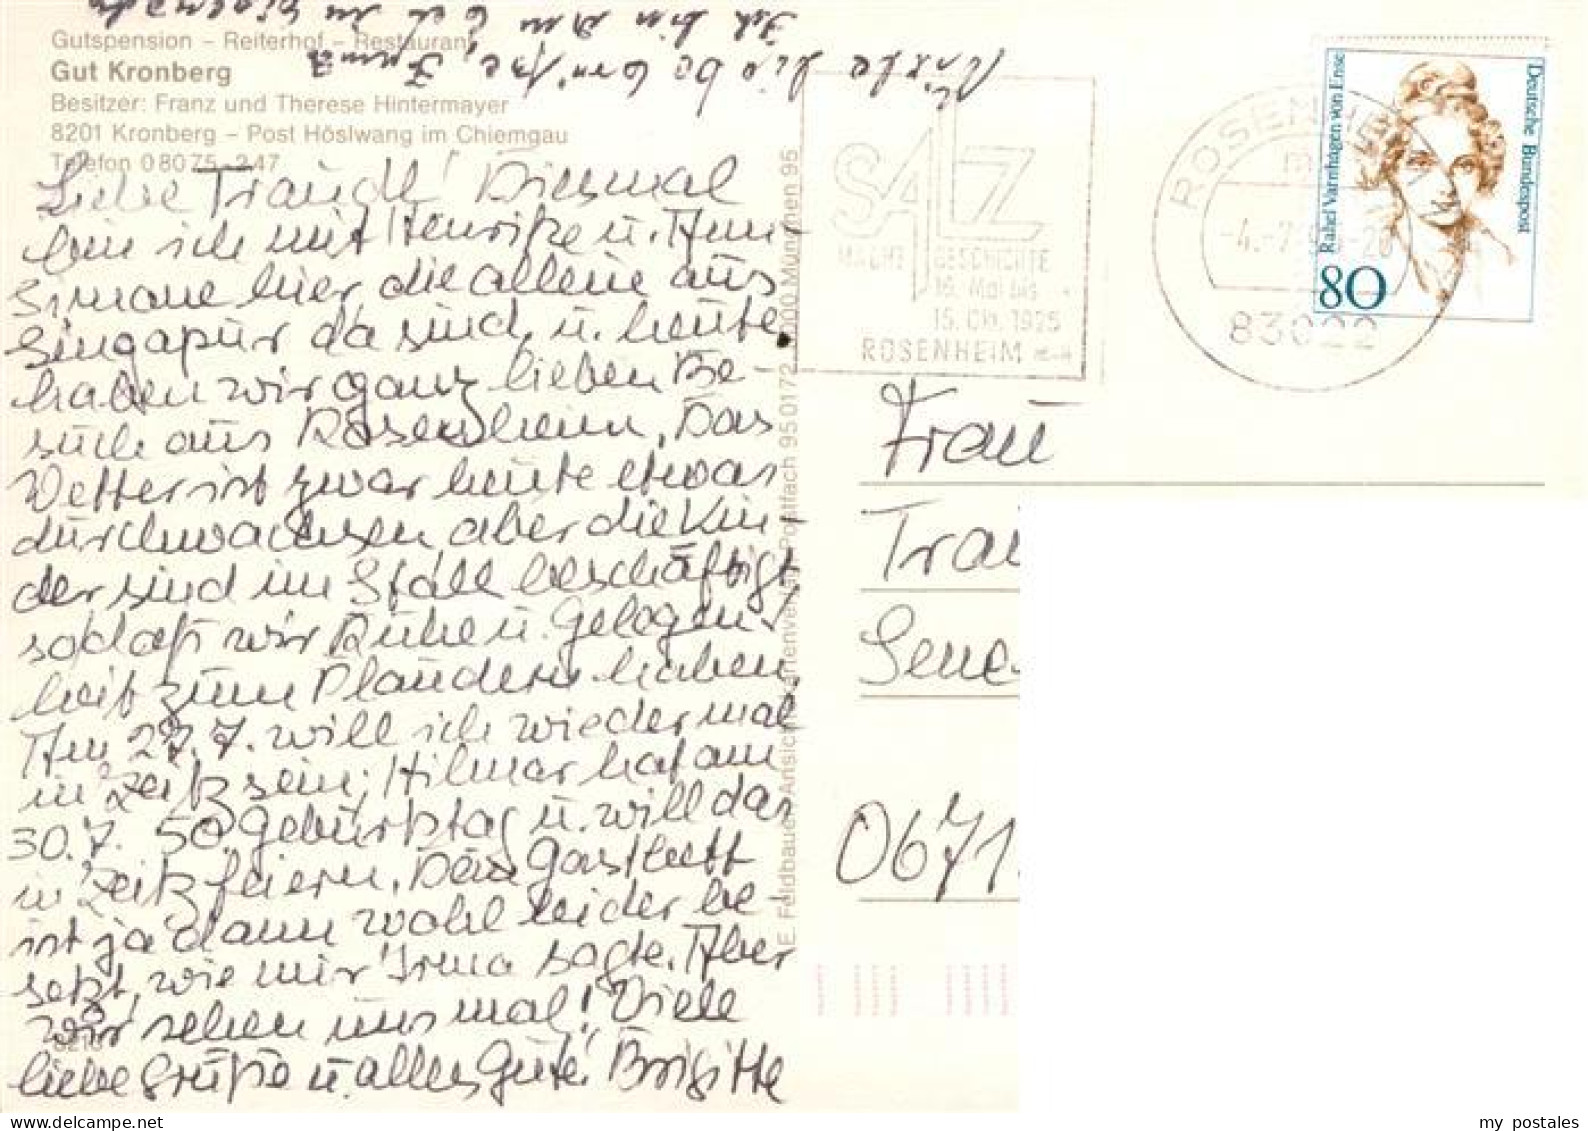 Gutspension – Reiterhof – Restaurant
Gut Kronberg
Besitzer: Franz und Therese Hintermayer
8201 Kronberg – Post Höslwang im Chiemgau
Telefon 08075-247
Liebe Traudl! Diesmal
bin ich mit Henrike u. Ann-
Simone hier, die alleine aus
Singapur da sind, u. heute
haben wir ganz lieben Be-
such aus Rosenheim. Das
Wetter ist zwar heute etwas
durchwachsen, aber die Kin-
der sind im Stall beschäftigt,
sodaß wir Ruhe u. Gelegen-
heit zum Plaudern haben.
Am 27.7. will ich wieder mal
in Zeitz sein; Hilmar hat am
30.7. 50. Geburtstag u. will das
in Zeitz feiern. Dein Gastbett
ist ja dann wohl leider be-
setzt, wie mir Irma sagte. Aber
wir sehen uns mal! Viele
liebe Grüße u. alles Gute! Brigitte
Ich bin am
Irma
E. Feldbauer Ansichtskartenverlag Postfach 950172 8000 München 95
SALZ
MACHT GESCHICHTE
16. Mai bis
15. Okt. 1995
ROSENHEIM
ROSENHEIM
83022
Deutsche Bundespost
Rahel Varnhagen von Ense
80
Frau
Trau
0671
my postales